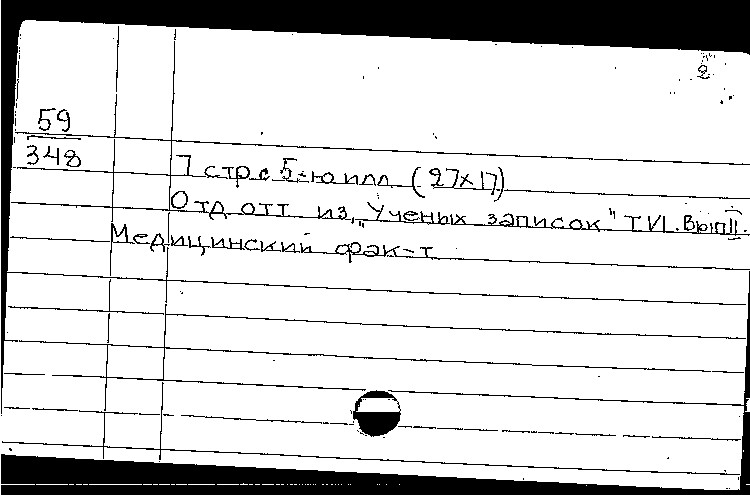 2
59
348
7 стр с 5-ю илл (27×17)
Отд отт из „Ученых записок" T VI. Вып II.
Медицинский фак-т